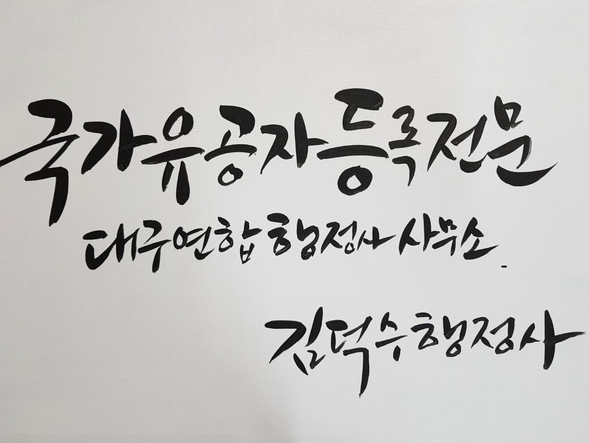 국가유공자등록전문
대구연합 행정사 사무소.
김덕수행정사